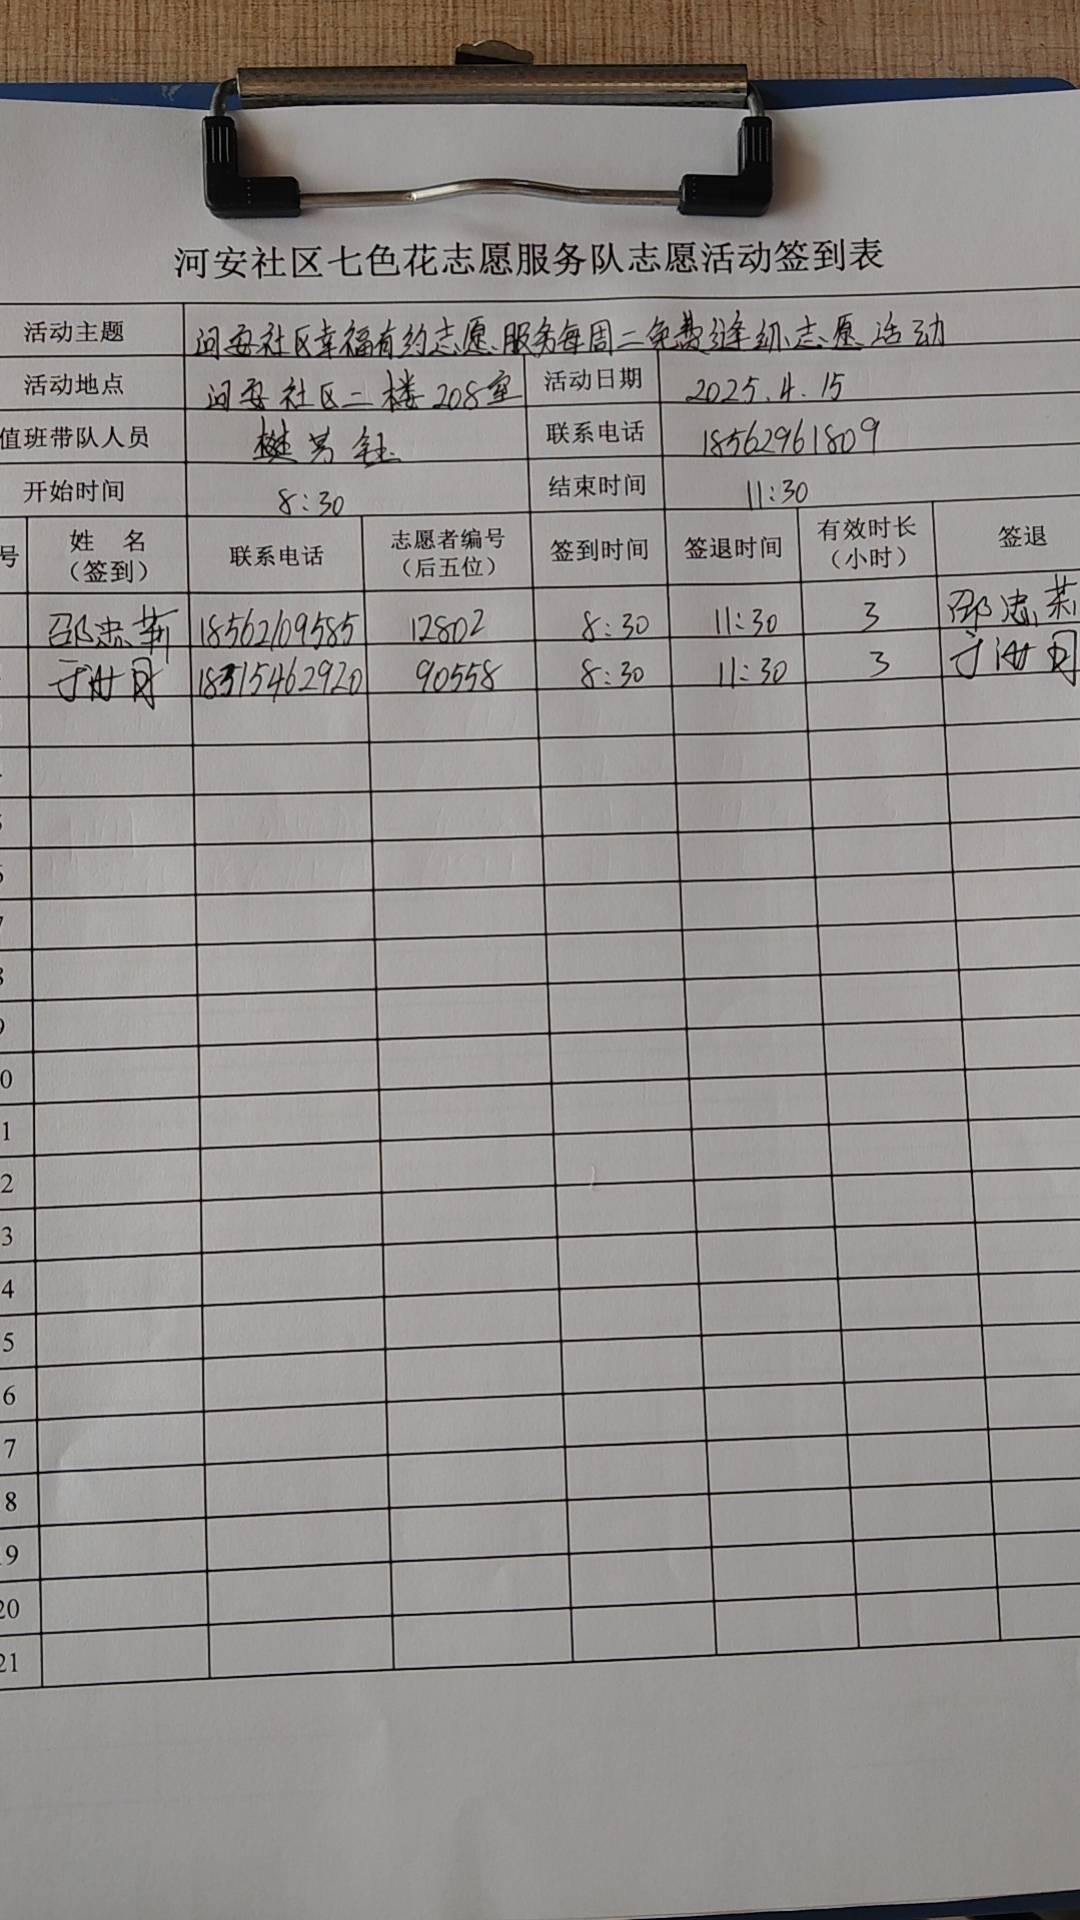 河安社区七色花志愿服务队志愿活动签到表
活动主题 河安社区幸福有约志愿服务每周二免费缝纫志愿活动
活动地点 河安社区二楼208室 活动日期 2025.4.15
值班带队人员 樊芳钰 联系电话 18562961809
开始时间 8:30 结束时间 11:30
号 姓 名 联系电话 志愿者编号 签到时间 签退时间 有效时长 签退
（签到） （后五位） （小时）
邵忠莉 18562109585 12802 8:30 11:30 3 邵忠莉
18315462920 90558 8:30 11:30 3
5
6
7
8
9
0
1
2
3
4
5
6
7
8
19
20
21